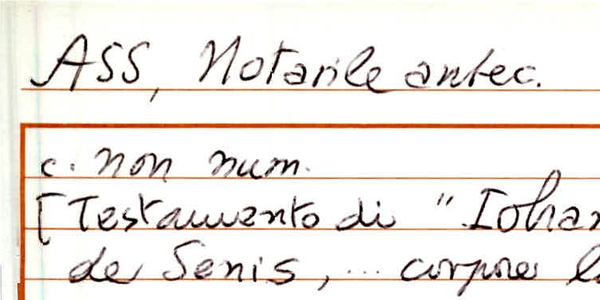 ASS, Notarile antec.
c. non num.
[Testamento di "Iohan
de Senis, ... corpore